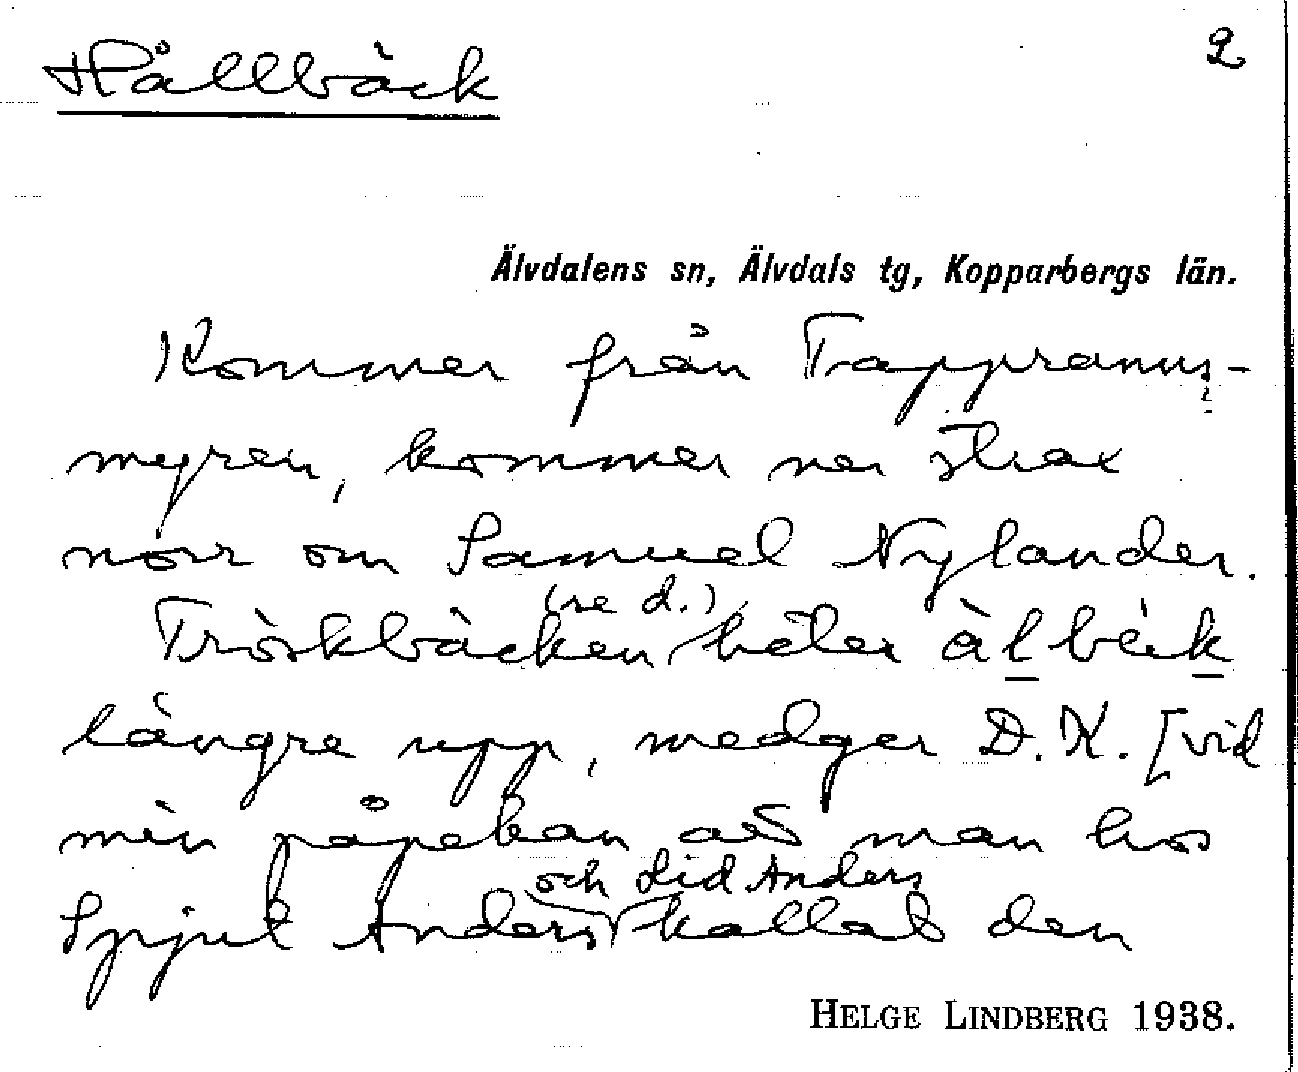 Hållbäck
2
Älvdalens sn, Älvdals tg, Kopparbergs län.
Kommer från Tappranus-
myren, kommer ner strax
norr om Samuel Nylander.
Tröskbäcken (se d.) heter àl béik
längre upp, medger D. K. [vid
min påpekan att man hos
Spjut Anders och Lid Anders kallat den
HELGE LINDBERG 1938.